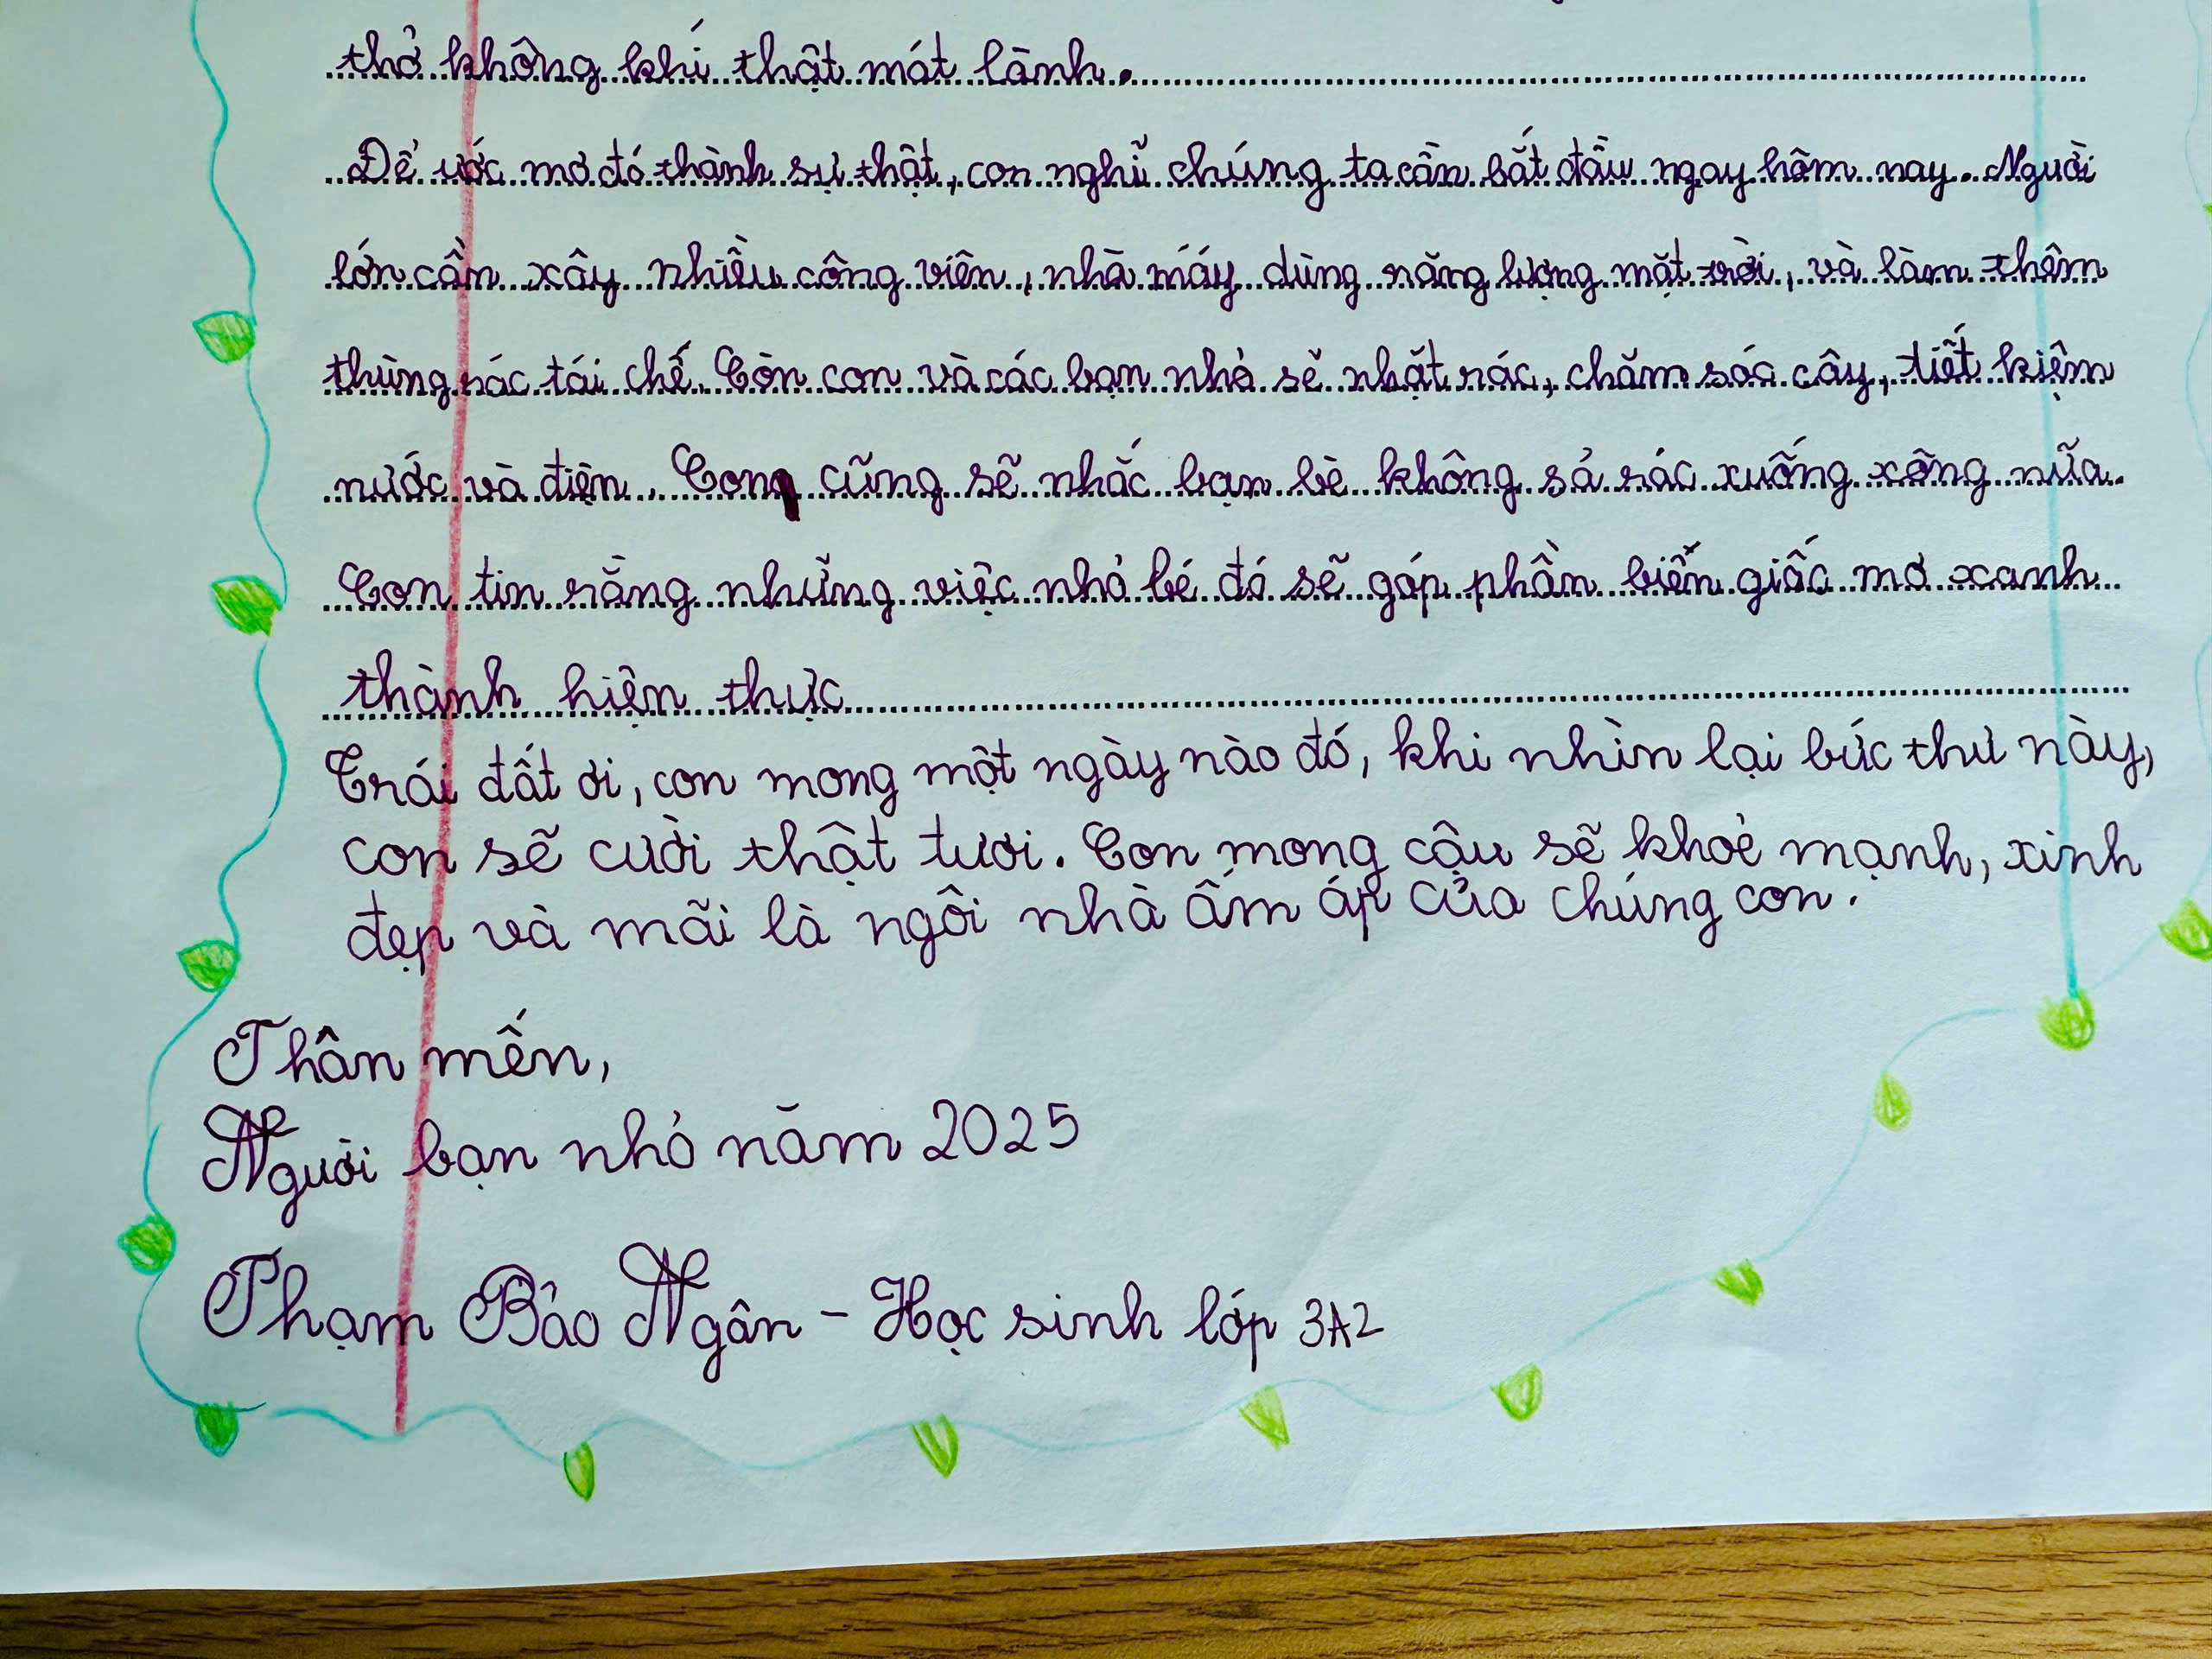 thở không khí thật mát lành.
Để ước mơ đó thành sự thật, con nghĩ chúng ta cần bắt đầu ngay hôm nay. Người
lớn cần xây nhiều công viên, nhà máy dùng năng lượng mặt trời, và làm thêm
thùng rác tái chế. Còn con và các bạn nhỏ sẽ nhặt rác, chăm sóc cây, tiết kiệm
nước và điện. Con cũng sẽ nhắc bạn bè không sả rác xuống xông nữa.
Con tin rằng những việc nhỏ bé đó sẽ góp phần biến giấc mơ xanh
thành hiện thực
Trái đất ơi, con mong một ngày nào đó, khi nhìn lại bức thư này,
con sẽ cười thật tươi. Con mong cậu sẽ khoẻ mạnh, xinh
đẹp và mãi là ngôi nhà ấm áp của chúng con.
Thân mến,
Người bạn nhỏ năm 2025
Phạm Bảo Ngân - Học sinh lớp 3A2